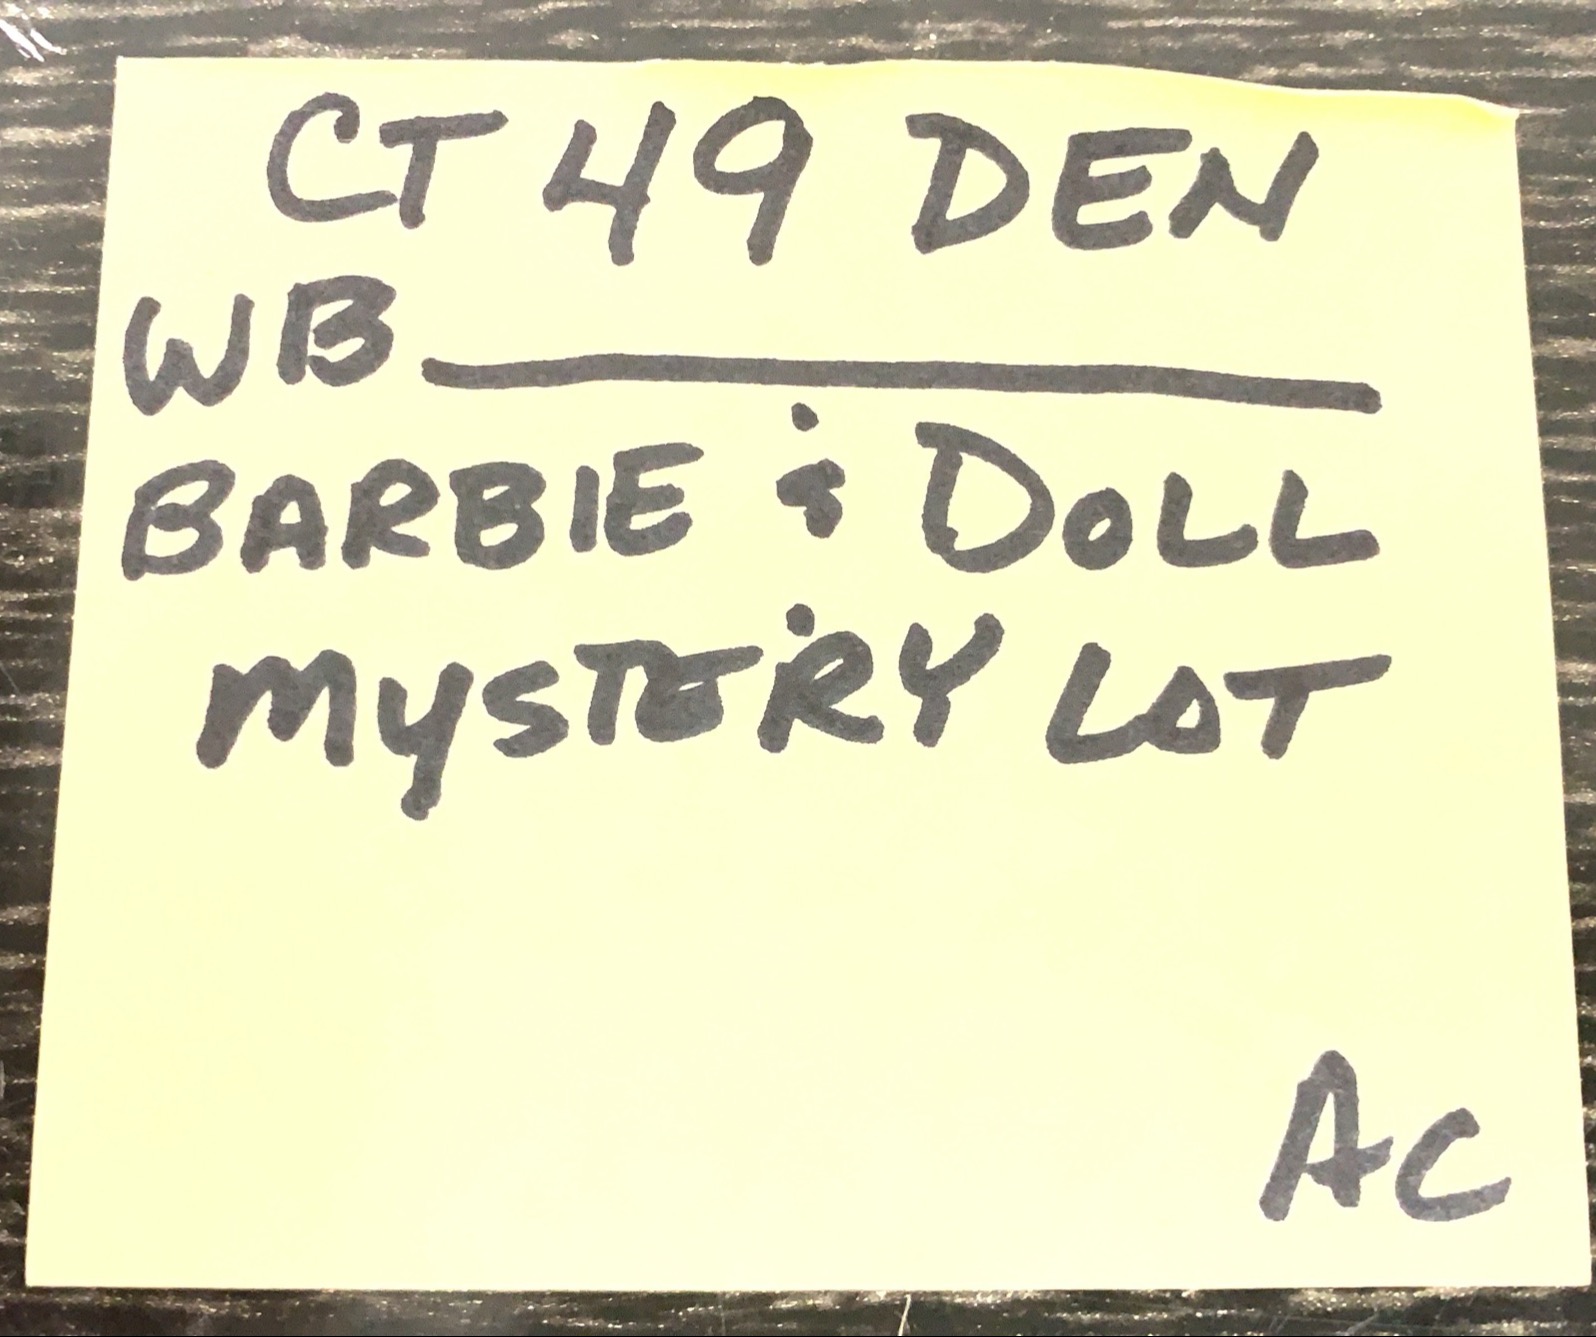 CT 49 DEN
WB ___________
BARBIE & DOLL
MYSTERY LOT
AC